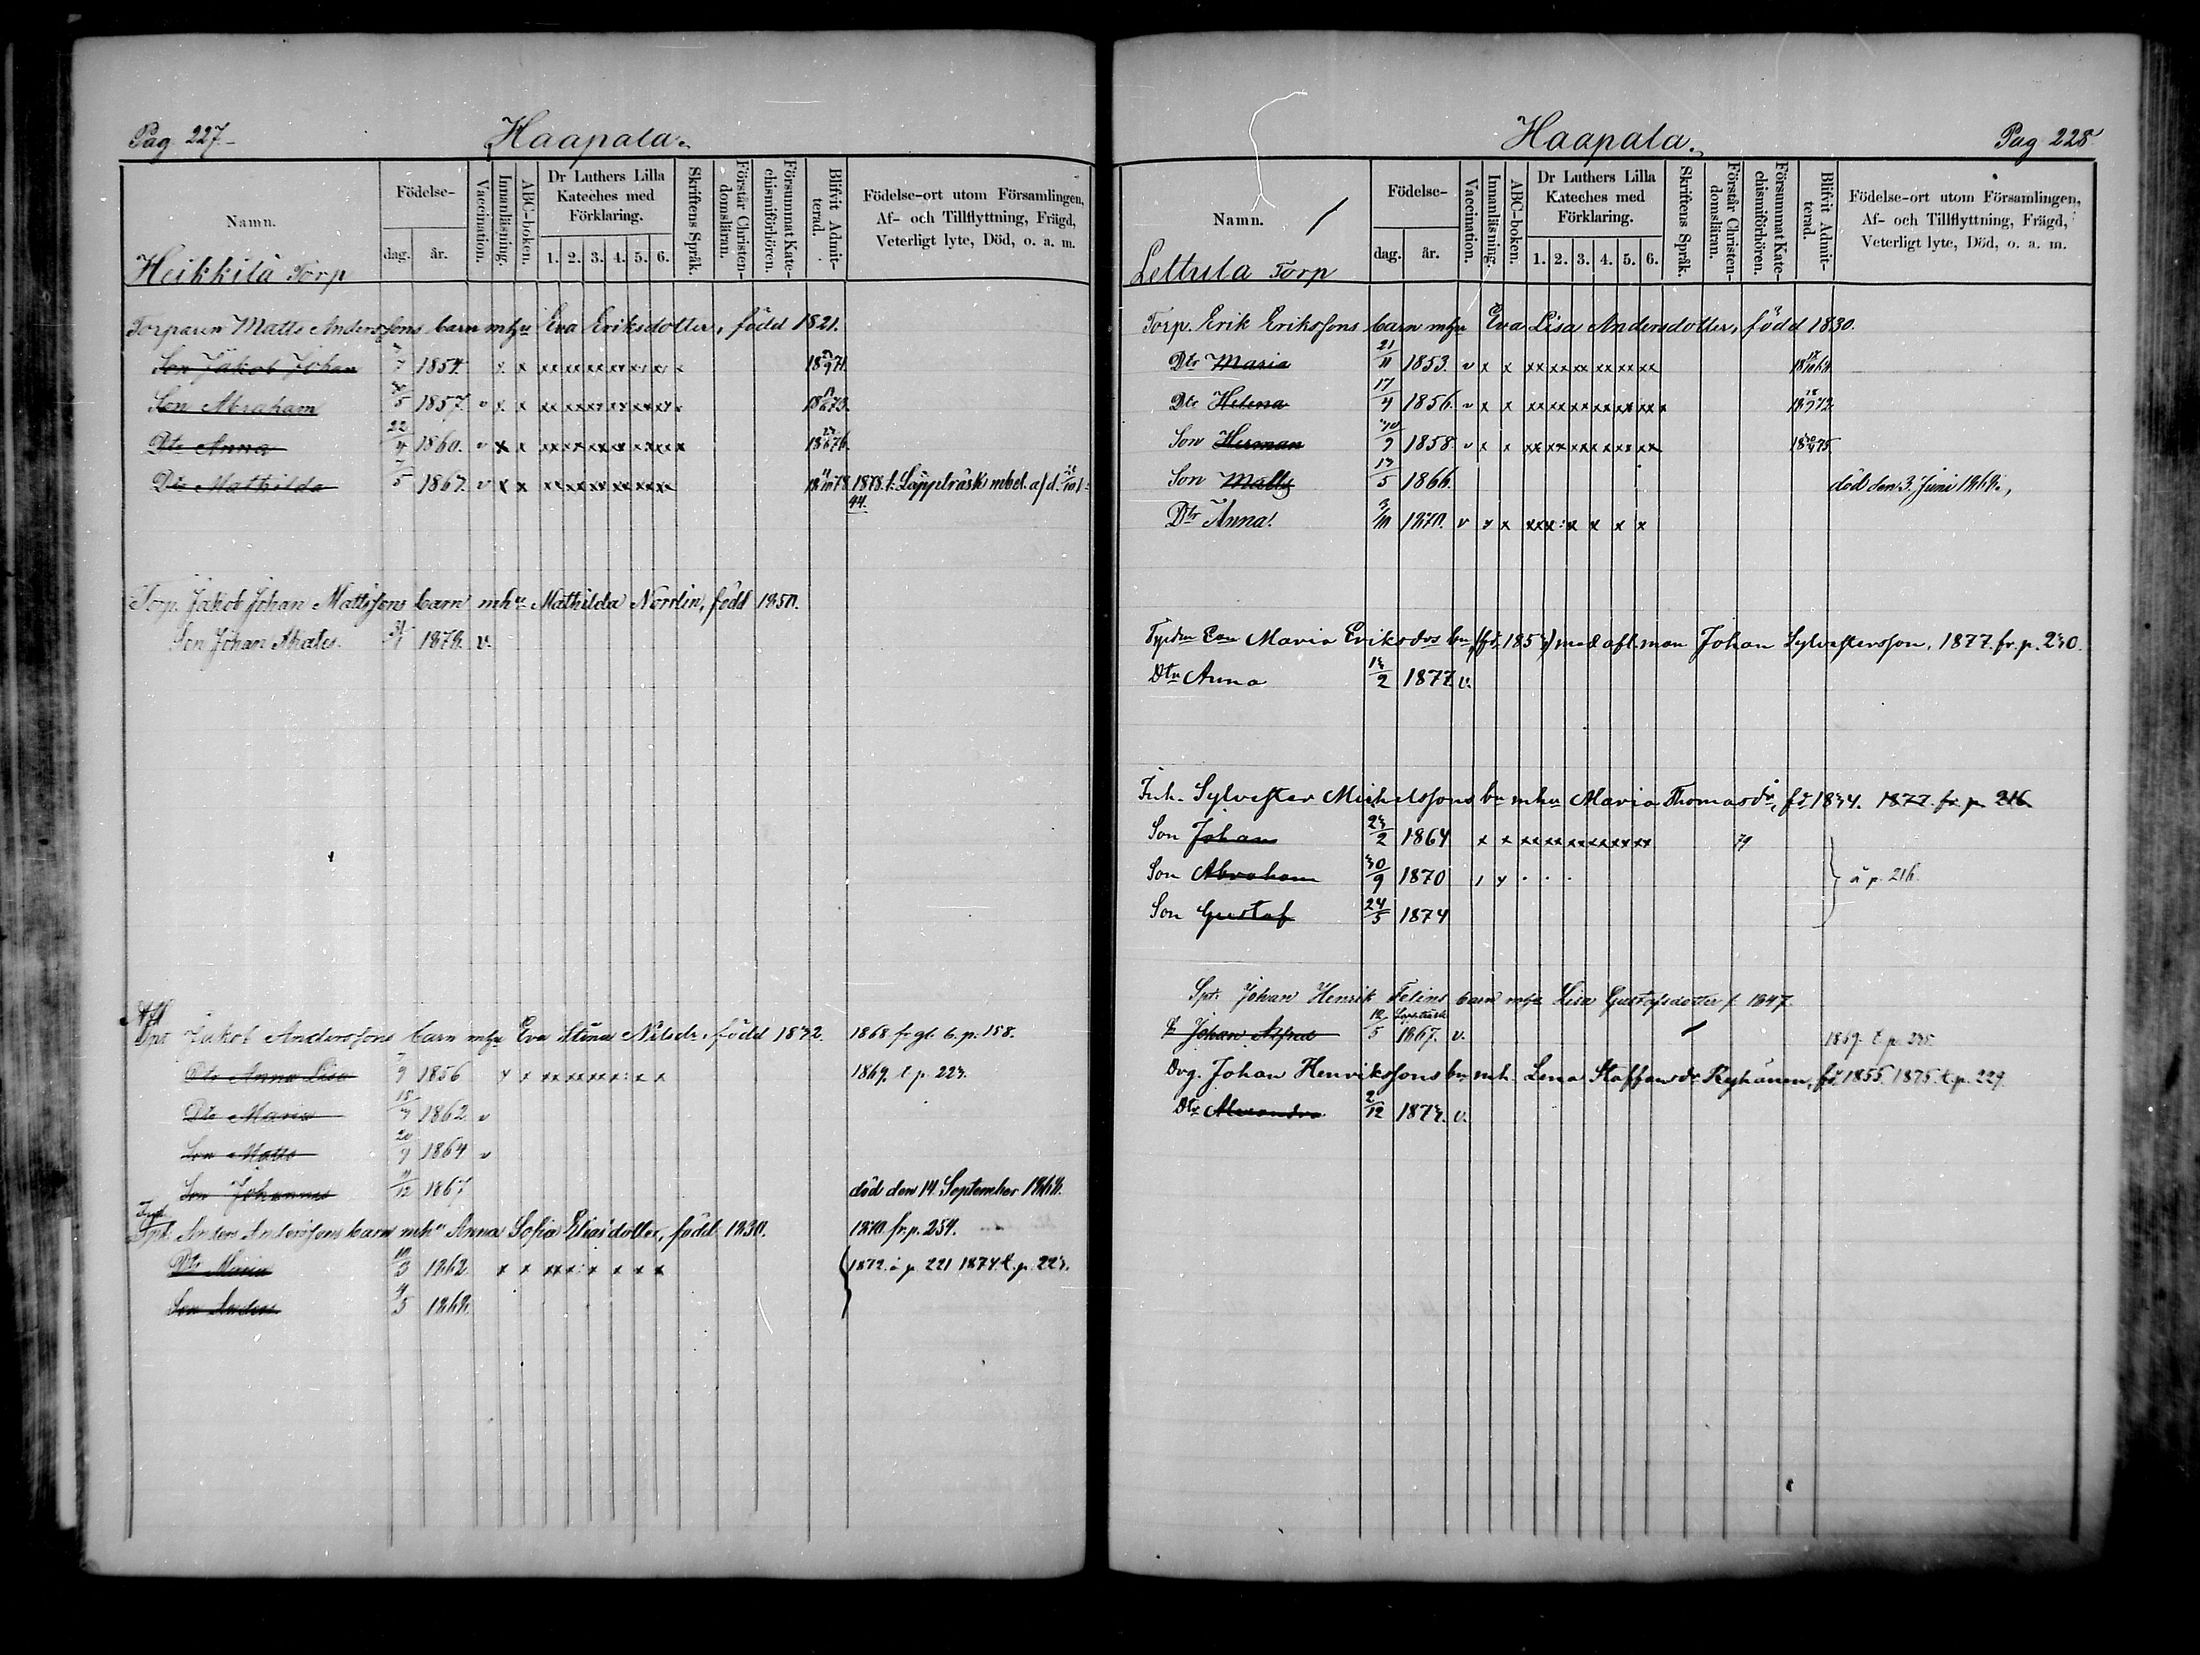 Pag 227.
Haapala.
Namn.
Födelse-
dag.
år.
Vaccination.
Innanläsning.
ABC-boken.
Dr Luthers Lilla
Kateches med
Förklaring.
1. 2. 3. 4. 5. 6.
Skriftens Språk.
Förstår Christen-
domsläran.
Försummat Kate-
chismiförhören.
Blifvit Admit-
terad.
Födelse-ort utom Församlingen,
Af- och Tillflyttning, Frägd,
Veterligt lyte, Död, o. a. m.
Heikkilä Torp
Torparen Matts Anderssons barn mhu Eva Eriksdotter, född 1821.
Son Jakob Johan 1854. x x xx xx xx xx xx x
Son Abraham 1857. v x x xx xx xx xx xx x
Dtr Anna 22/4 1860. v x x xx xx xx xx xx x
Dtr Mathilda 1867. v x x xx xx xx xx xx 1878. t. Lappträsk mbet. afd.
44.
Torp. Jakob Johan Mattssons barn mhu Mathilda Norrlin, född 1850.
Son Johan 1878. v.
Jakob Anderssons barn mhu Eva Stina Nilsdr. född 1832. 1868 fr gl. b. p. 158.
Dtr Anna Lisa 1856 x x xx xx xx : x x 1869. t p. 223.
Dtr Maria 1862. v
Son Matts 20/9 1864 v
Son Johannes 1867 död den 14 September 1868.
Anders Anderssons barn mhu Anna Sofia Eliasdotter, född 1830. 1870 fr. p. 254.
Dtr Maria 10/3 1862. x x xx x : x x x x 1872. å p. 221 1874. t. p. 223.
Son Anders 4/5 1868.
Haapala.
Pag 228
Namn.
Födelse-
dag.
år.
Vaccination.
Innanläsning.
ABC-boken.
Dr Luthers Lilla
Kateches med
Förklaring.
1. 2. 3. 4. 5. 6.
Skriftens Språk.
Förstår Christen-
domsläran.
Försummat Kate-
chismiförhören.
Blifvit Admit-
terad.
Födelse-ort utom Församlingen,
Af- och Tillflyttning, Frägd,
Veterligt lyte, Död, o. a. m.
Lettula Torp
Torp. Erik Erikssons barn mhu Eva Lisa Andersdotter, född 1830.
Dtr Maria 21/11 1853. v x x xx xx xx xx xx
Dtr Helena 17/4 1856. v x x xx xx xx xx xx x
Son Herman 1858. v x x xx xx xx xx xx
Son Matts 13/5 1866. död den 3. Juni 1868.
Dtr Anna. 1870. v x x xx x : x x x x
Maria Eriksdrs bn (fd. 1853) med afl. man Johan Sylvesterson, 1877. fr. p. 230.
Dtr Anna 13/2 1877 v.
Inh. Sylvester Michelssons bn mhu Maria Thomasdr, fd 1834. 1877 fr. p. 216
Son Johan 23/2 1864 x x xx xx xx xx xx 79
Son Abraham 30/9 1870 å p. 216.
Son Gustaf 24/5 1874
Johan Henrik Felins barn mhu Lisa Gustafsdotter f. 1847
Johan Alfred 12/5 Lappträsk 1867. v. 1869. t. p. 235.
Drg. Johan Henrikssons bn mh. Lena Staffansdr Ryhänen, fd 1855. 1875. t. p. 229.
Dtr Alexandra 2/12 1873. v.